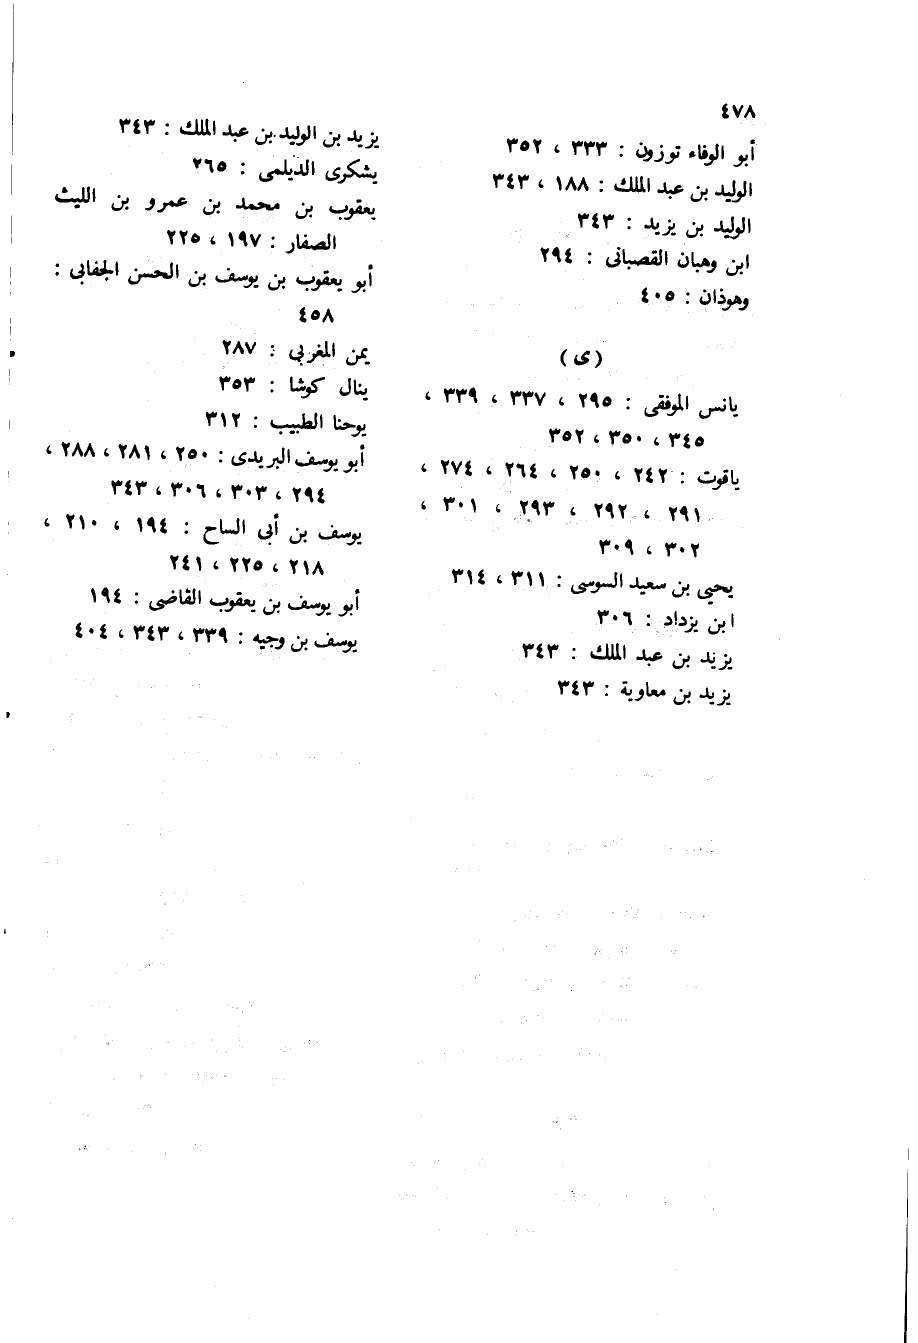 ٤٧٨
أبو الوفاء توزون : ٣٣٣ ، ٣٥٢
الوليد بن عبد الملك : ١٨٨ ، ٣٤٣
الوليد بن يزيد : ٣٤٣
ابن وهبان القصبانى : ٢٩٤
وهوذان : ٤٠٥
(ى)
يانس الموفقى : ٢٩٥ ، ٣٣٧ ، ٣٣٩ ،
٣٤٥ ، ٣٥٠ ، ٣٥٢
ياقوت : ٢٤٢ ، ٢٥٠ ، ٢٦٤ ، ٢٧٤ ،
٢٩١ ، ٢٩٢ ، ٢٩٣ ، ٣٠١ ،
٣٠٢ ، ٣٠٩
يحيى بن سعيد السوسى : ٣١١ ، ٣١٤
ابن يزداد : ٣٠٦
يزيد بن عبد الملك : ٣٤٣
يزيد بن معاوية : ٣٤٣
يزيد بن الوليد بن عبد الملك : ٣٤٣
يشكرى الديلمى : ٢٦٥
يعقوب بن محمد بن عمرو بن الليث
الصفار : ١٩٧ ، ٢٢٥
أبو يعقوب بن يوسف بن الحسن الجفابى :
٤٥٨
يمن المغربى : ٢٨٧
ينال كوشا : ٣٥٣
يوحنا الطبيب : ٣١٢
أبو يوسف البريدى : ٢٥٠ ، ٢٨١ ، ٢٨٨ ،
٢٩٤ ، ٣٠٣ ، ٣٠٦ ، ٣٤٣
يوسف بن أبى الساح : ١٩٤ ، ٢١٠ ،
٢١٨ ، ٢٢٥ ، ٢٤١
أبو يوسف بن يعقوب القاضى : ١٩٤
يوسف بن وجيه : ٣٣٩ ، ٣٤٣ ، ٤٠٤